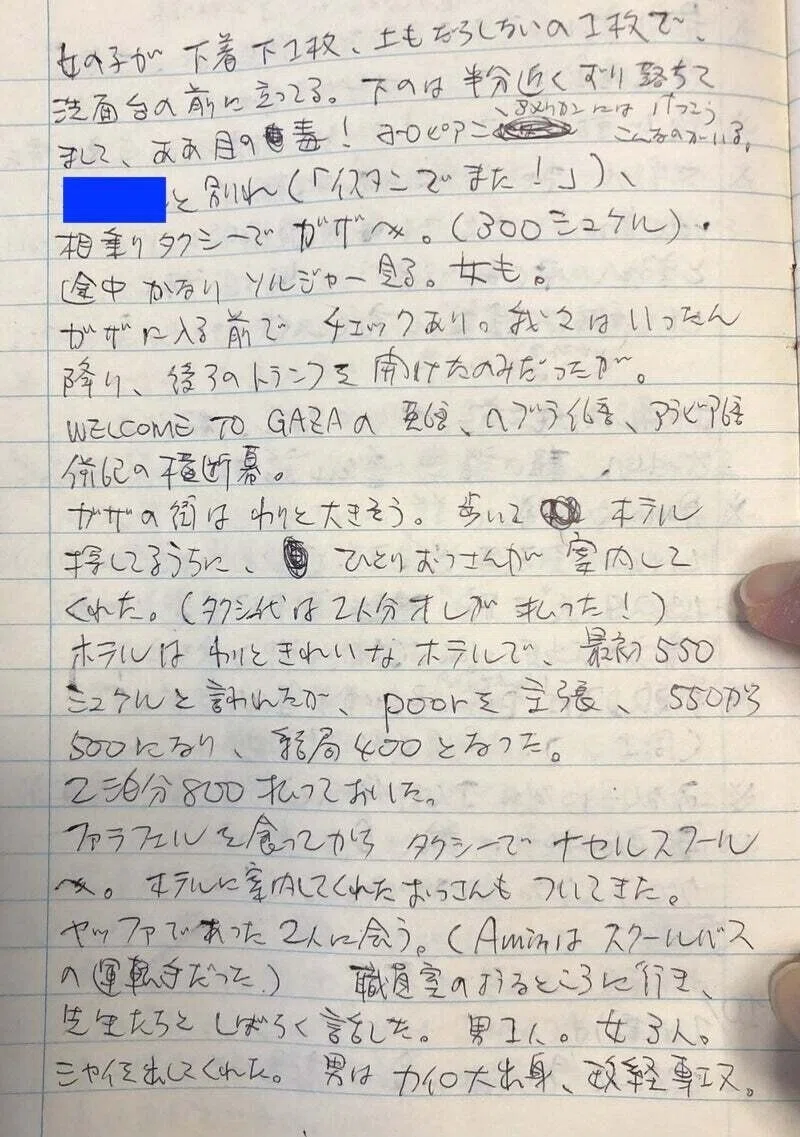 女の子が 下着下1枚、上もだらしないの1枚で、
洗面台の前に立ってる。下のは 半分近くずり落ちて
まして、ああ目の毒! ヨーロピアン アメリカンには けっこう こんなのがいる。
と別れ(「イスタンでまた!」)、
相乗りタクシーで ガザへ。(300シュケル)・
途中 かなり ソルジャー見る。女も。
ガザに入る前で チェックあり。我々は いったん
降り、後ろのトランクを 開けたのみだったが。
WELCOME TO GAZAの 英語、ヘブライ語、アラビア語
併記の横断幕。
ガザの街は わりと大きそう。歩いて ホテル
捜してるうちに、 ひとりおっさんが 案内して
くれた。(タクシ代は2人分オレが払った!)
ホテルは わりときれいな ホテルで、最初550
シュケルと言われたが、poorを主張、550から
500になり、結局400となった。
2泊分800払っておいた。
ファラフェルを食ってから タクシーで ナセルスクール
へ。ホテルに案内してくれたおっさんも ついてきた。
ヤッファであった2人に会う。(Aminは スクールバス
の運転手だった) 職員室のようなところに行き、
先生たちと しばらく話した。男1人。女3人。
シャイを出してくれた。男は カイロ大出身、政経専工ス。